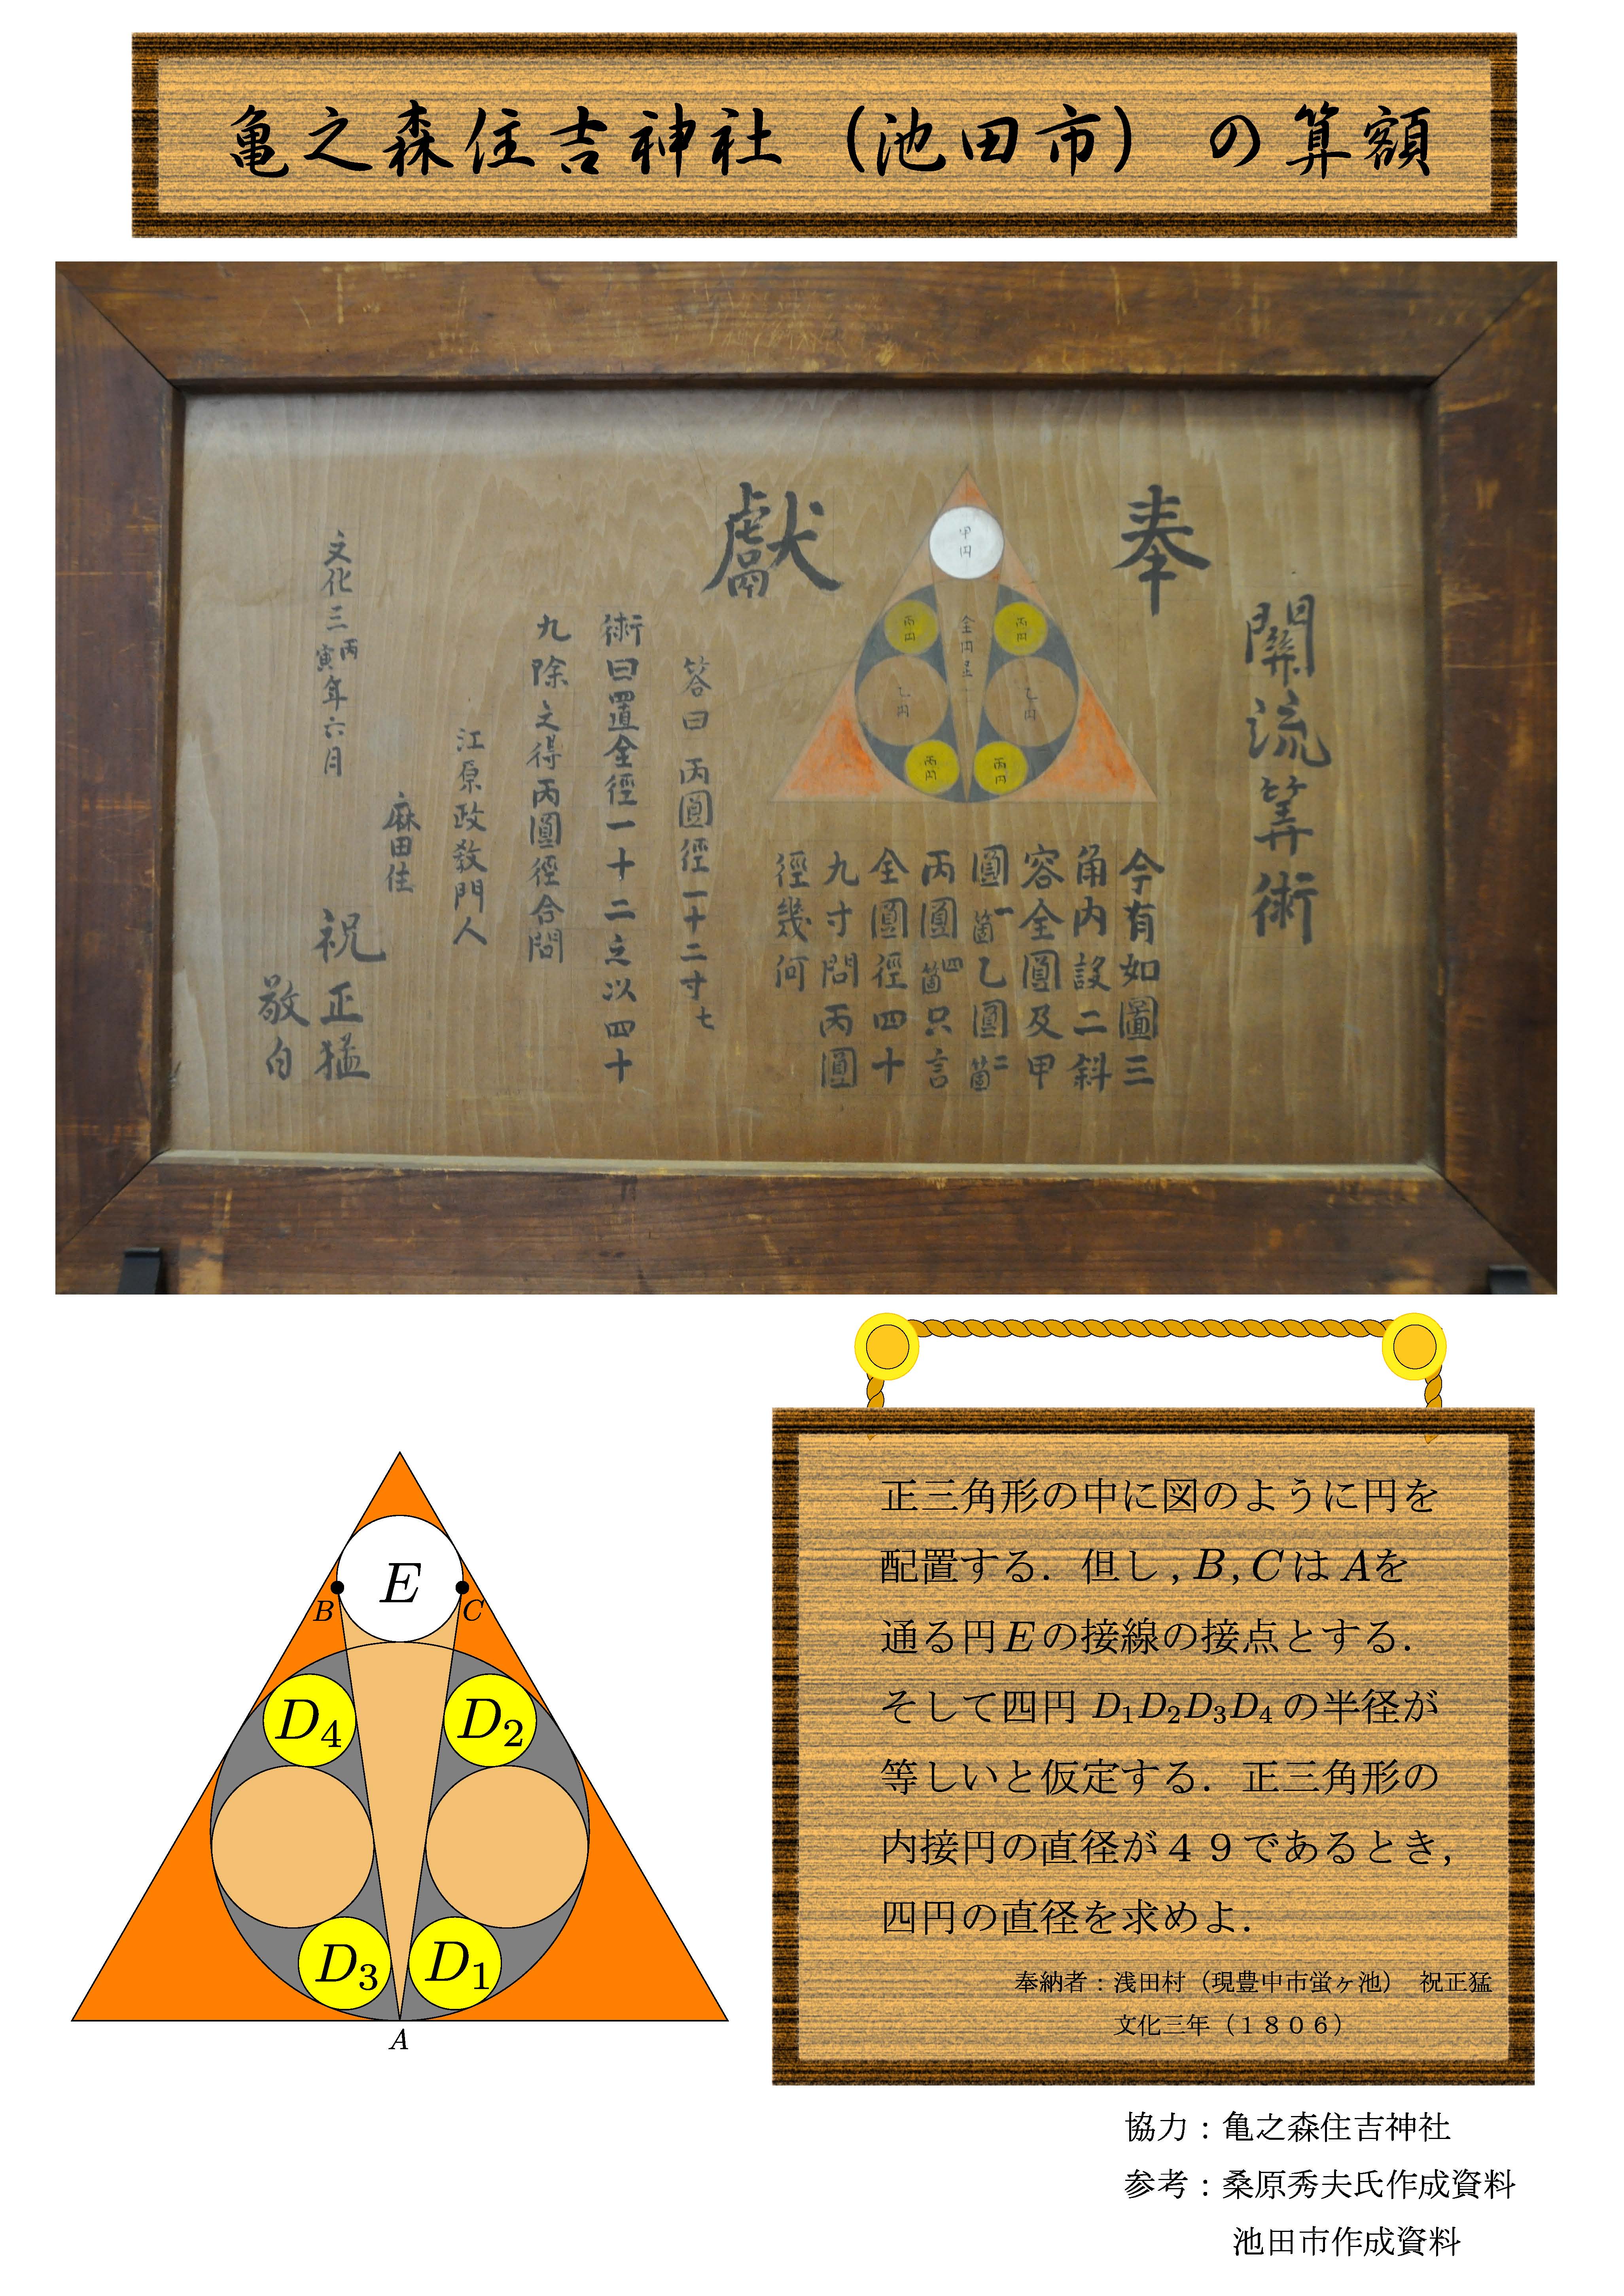 亀之森住吉神社（池田市）の算額
奉
獻
關流筭術
甲円
丙円
丙円
全円
乙円
乙円
丙円
丙円
今有如圖三
角内設二斜
容全圓及甲
圓一箇乙圓二箇
丙圓四箇只言
全圓徑四十
九寸問丙圓
徑幾何
答曰丙圓徑一十二寸七
術曰置全徑一十二之以四十
九除之得丙圓徑合問
江原政敎門人
麻田住
祝正猛
敬白
文化三丙寅年六月
E
B
C
D4
D2
D3
D1
A
正三角形の中に図のように円を
配置する．但し , B, C は A を
通る円 E の接線の接点とする．
そして四円 D1D2D3D4 の半径が
等しいと仮定する．正三角形の
内接円の直径が４９であるとき，
四円の直径を求めよ．
奉納者：浅田村（現豊中市蛍ヶ池） 祝正猛
文化三年（１８０６）
協力：亀之森住吉神社
参考：桑原秀夫氏作成資料
池田市作成資料